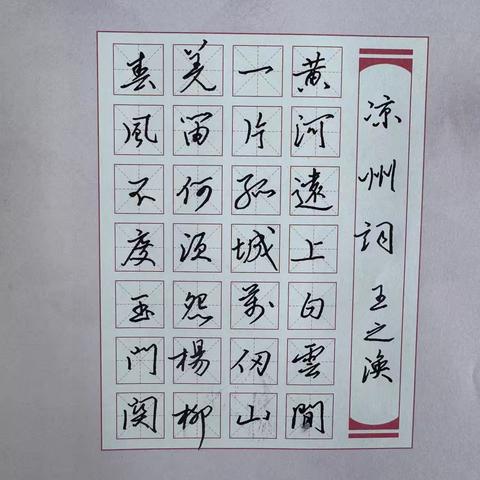 凉州词 王之渙
黄河遠上白雲間
一片孤城萬仞山
羌笛何须怨楊柳
春風不度玉門関